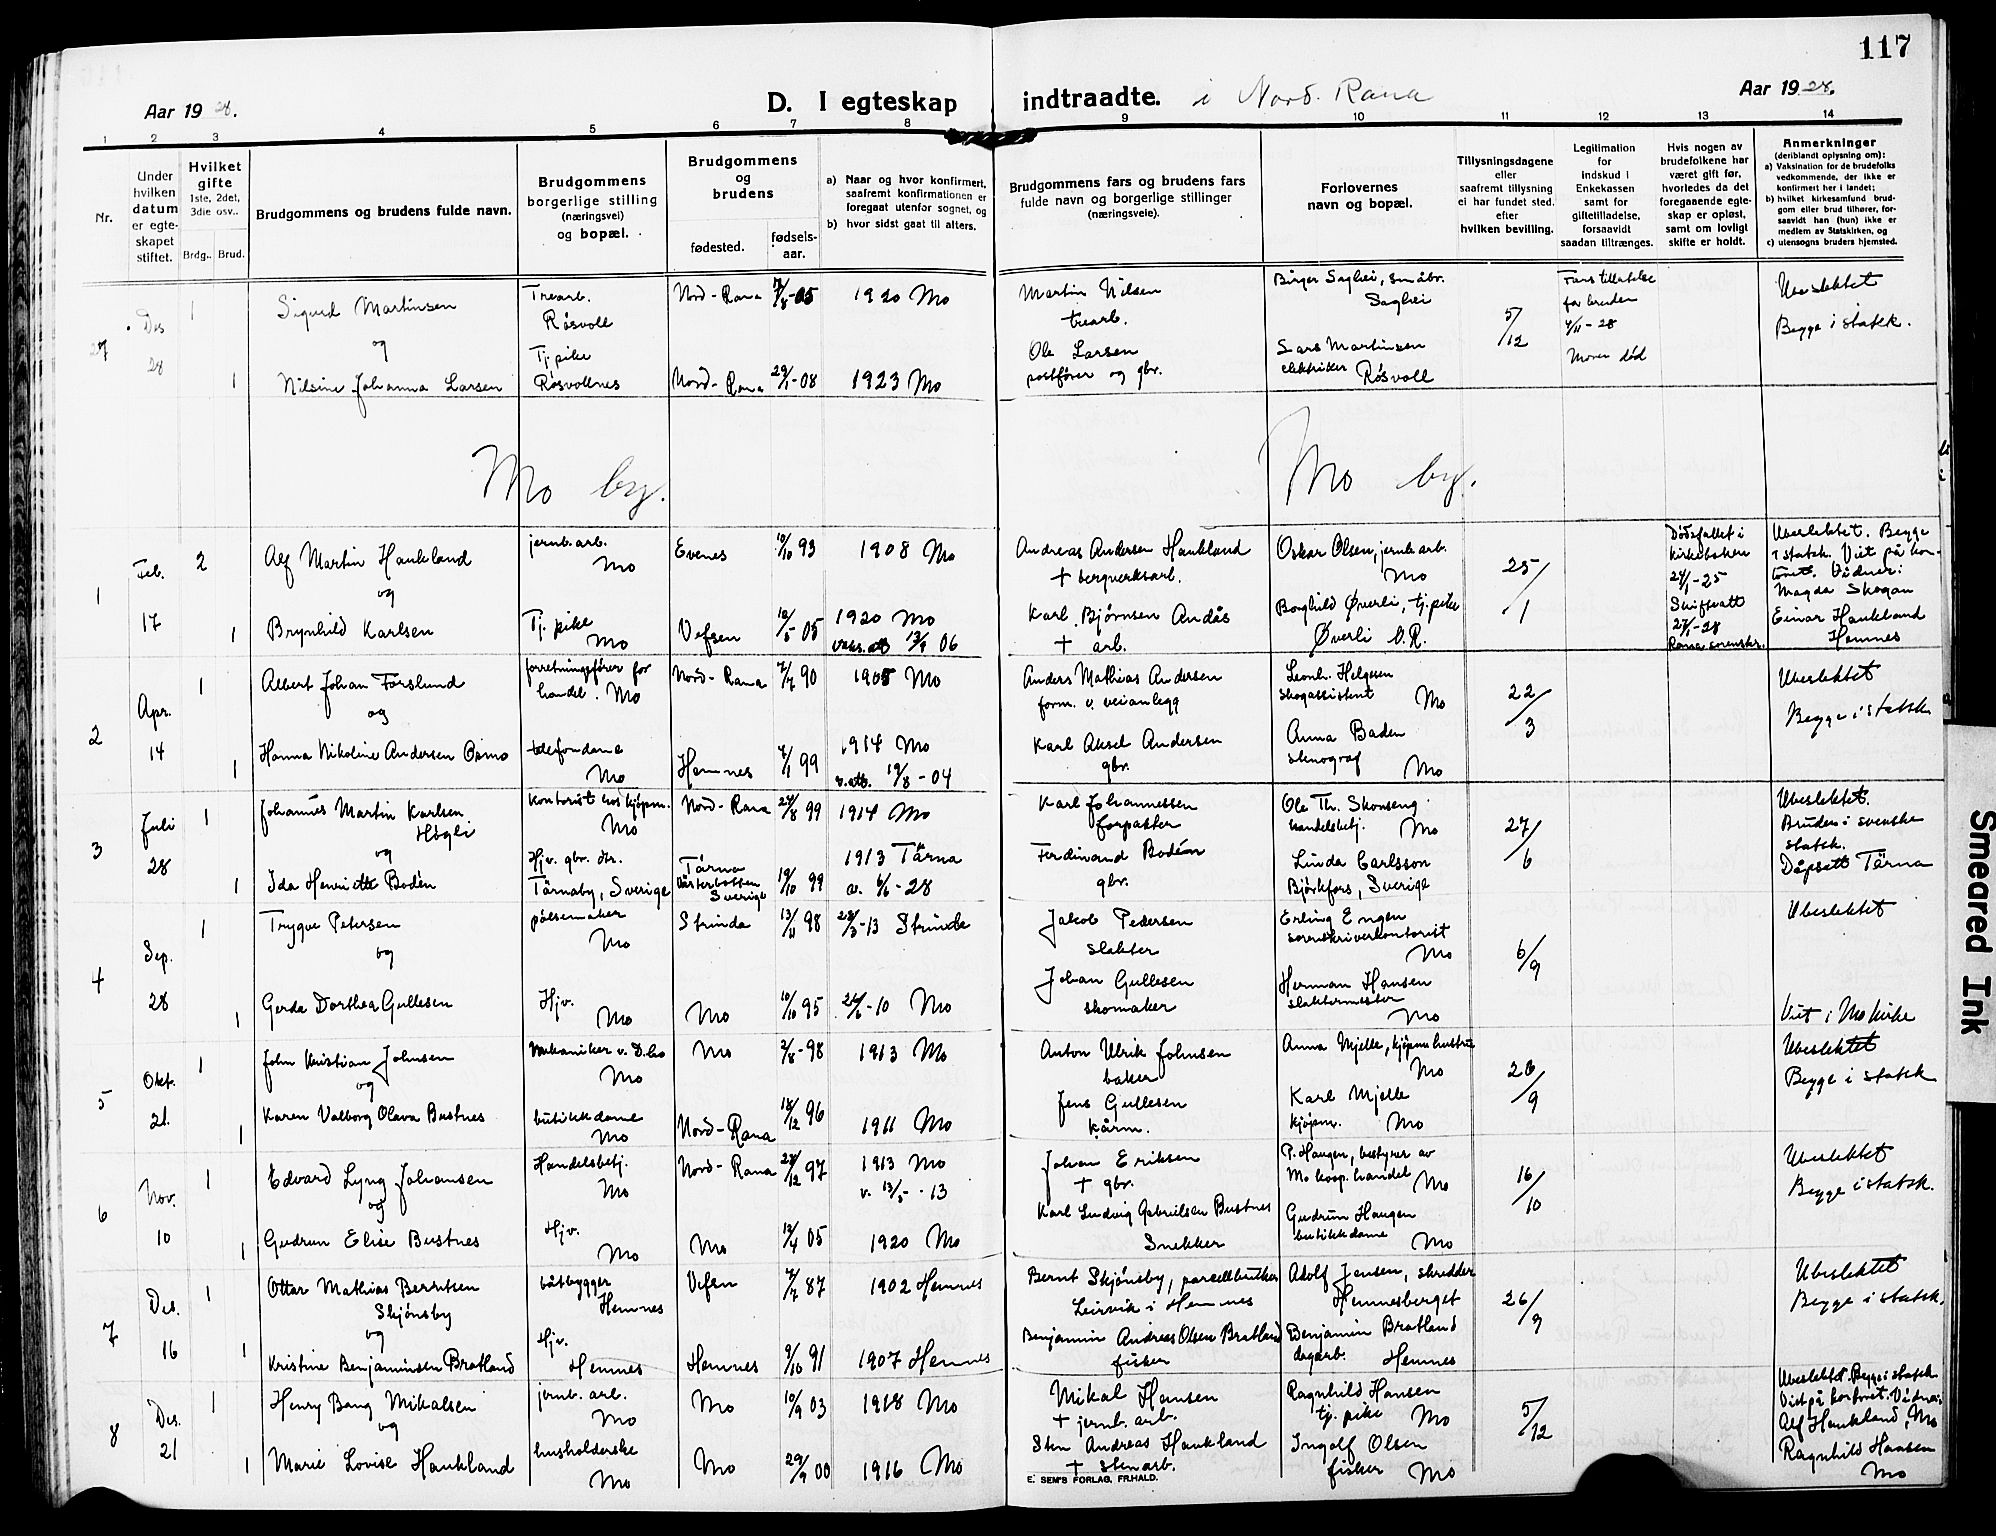 117
Aar 1928.
D. I egteskap indtraadte. i Nord. Rana
Aar 1928.
1 2 3 4 5 6 7 8 9 10 11 12 13 14
Nr.
Under hvilken datum er egteskapet stiftet.
Hvilket gifte 1ste, 2det, 3die osv..
Brdg.. Brud.
Brudgommens og brudens fulde navn.
Brudgommens borgerlige stilling (næringsvei) og bopæl.
Brudgommens og brudens
fødested. fødselsaar.
a) Naar og hvor konfirmert, saafremt konfirmationen er foregaat utenfor sognet, og
b) hvor sidst gaat til alters.
Brudgommens fars og brudens fars fulde navn og borgerlige stillinger (næringsveie).
Forlovernes navn og bopæl.
Tillysningsdagene eller saafremt tillysning ei har fundet sted, efter hvilken bevilling.
Legitimation for indskud i Enkekassen samt for giftetilladelse, forsaavidt saadan tiltrænges.
Hvis nogen av brudefolkene har været gift før, hvorledes da det foregaaende egteskap er opløst, samt om lovligt skifte er holdt.
Anmerkninger (deriblandt oplysning om):
a) Vaksination for de brudefolks vedkommende, der ikke er konfirmert her i landet;
b) hvilket kirkesamfund brudgom eller brud tilhører, forsaavidt han (hun) ikke er medlem av Statskirken, og
c) utensogns bruders hjemsted.
27 Des 28 1 Sigurd Martinsen Trearb. Røsvoll Nord-Rana 05 1920 Mo Martin Nilsen trearb. Birger Saghei, småbr. Saghei 5/12 Fars tillatelse for bruden 4/11-28 Moren død Ubeslektet Begge i statsk.
og
1 Nilsine Johanna Larsen Tj. pike Røsvollnes Nord-Rana 29/1-08 1923 Mo Ole Larsen postfører og gbr. Lars Martinsen elektriker Røsvoll
Mo by. Mo by.
1 Feb. 17 2 Alf Martin Haukland jernb. arb. Mo Evenes 10/10 93 1908 Mo Andreas Andersen Haukland + bergverksarb. Oskar Olsen, jernb. arb. Mo 25/1 Dødsfallet i kirkeboken 24/1-25 Skifteatt 27/1-28 Rana sorenskr. Ubeslektet. Begge i statsk. Viet på kontoret. Vidner: Magda Skogan Einar Haukland Hemnes
og
1 Brynhild Karlsen Tj. pike Mo Vefsen 12/5 05 1920 Mo vaks. att 13/9 06 Karl Bjørnsen Andås + arb. Borghild Øverli, tj. pike Øverli N.R.
2 Apr. 14 1 Albert Johan Forslund forretningsfører for handel. Mo Nord-Rana 7/7 90 1905 Mo Anders Mathias Andersen form. v. veianlegg Leonh. Helgesen skogassistent Mo 22/3 Ubeslektet Begge i statsk
og
1 Hanna Nikoline Andersen Osmo telefondame Mo Hemnes 7/1 99 1914 Mo v. att. 19/8-04 Karl Aksel Andersen gbr. Anna Baden stenograf Mo
3 Juli 28 1 Johannes Martin Karlsen Høgli kontorist hos kjøpm. Mo Nord-Rana 24/8 99 1914 Mo Karl Johannessen forpakter Ole Th. Skonseng handelsbetj. Mo 27/6 Ubeslektet. Bruden i svenske statsk. Dåpsatt Tärna
og
1 Ida Henriette Bodén Hjv. gbr. dtr. Tärnaby, Sverige Tärna Västerbotten Sverige 19/10 99 1913 Tärna a. 6/6-28 Ferdinand Bodén gbr. Linda Carlsson Björkfors, Sverige
4 Sep. 28 1 Trygve Petersen pølsemaker Mo Strinda 13/11 98 28/3-13 Strinda Jakob Pedersen slakter Erling Engen sorenskriverkontorist Mo 6/9 Ubeslektet
og
1 Gerda Dorthea Gullesen Hjv. Mo Mo 10/10 95 26/6-10 Mo Johan Gullesen skomaker Herman Hansen slaktermester Mo Viet i Mo kirke
5 Okt. 21. 1 John Kristian Johnsen mekaniker v. D. Mo Mo 2/8-98 1913 Mo Anton Ulrik Johnsen baker Anna Mjelle, kjøpm. hustru Mo 20/9 Ubeslektet Begge i statsk
og
1 Karen Valborg Olava Bustnes butikkdame Mo Nord-Rana 18/12 96 1911 Mo Jens Gullesen kårm. Karl Mjelle kjøpm. Mo
6 Nov. 10 1 Edvard Lyng Johansen Handelsbetj. Mo Nord-Rana 28/12 97 1913 Mo v. 13/5-13 Johan Eriksen + gbr. P. Haugen, bestyrer av Mo koop. handel Mo 16/10 Ubeslektet Begge i statsk.
og
1 Gudrun Elise Bustnes Hjv. Mo Mo 12/4 05 1920 Mo Karl Ludvig Gabrielsen Bustnes Snekker Gudrun Haugen butikkdame Mo
7 Des. 16 1 Ottar Mathias Berntsen Skjønsby båtbygger Hemnes Vefsn 7/7 87 1902 Hemnes Bernt Skjønsby, parcellbruker Leirvik i Hemnes Adolf Jensen, skredder Hemnesberget 26/9 Ubeslektet Begge i statsk.
og
1 Kristine Benjaminsen Bratland Hjv. Hemnes Hemnes 9/10 91 1907 Hemnes Benjamin Andreas Olsen Bratland fisker Benjamin Bratland dagarb. Hemnes
8 Des. 21 1 Henry Bang Mikalsen jernb. arb. Mo Mo 10/9 03 1918 Mo Mikal Hansen + jernb. arb. Ragnhild Hansen tj. pike Mo 5/12 Ubeslektet. Begge i statsk Viet på kontoret. Vidner: Alf Haukland, Mo Ragnhild Hansen Mo
og
1 Marie Lovise Haukland husholderske Mo Mo 29/9 00 1916 Mo Sten Andreas Haukland + stenarb. Ingolf Olsen fisker Mo
E. SEM'S FORLAG, FR.HALD.
Smeared Ink